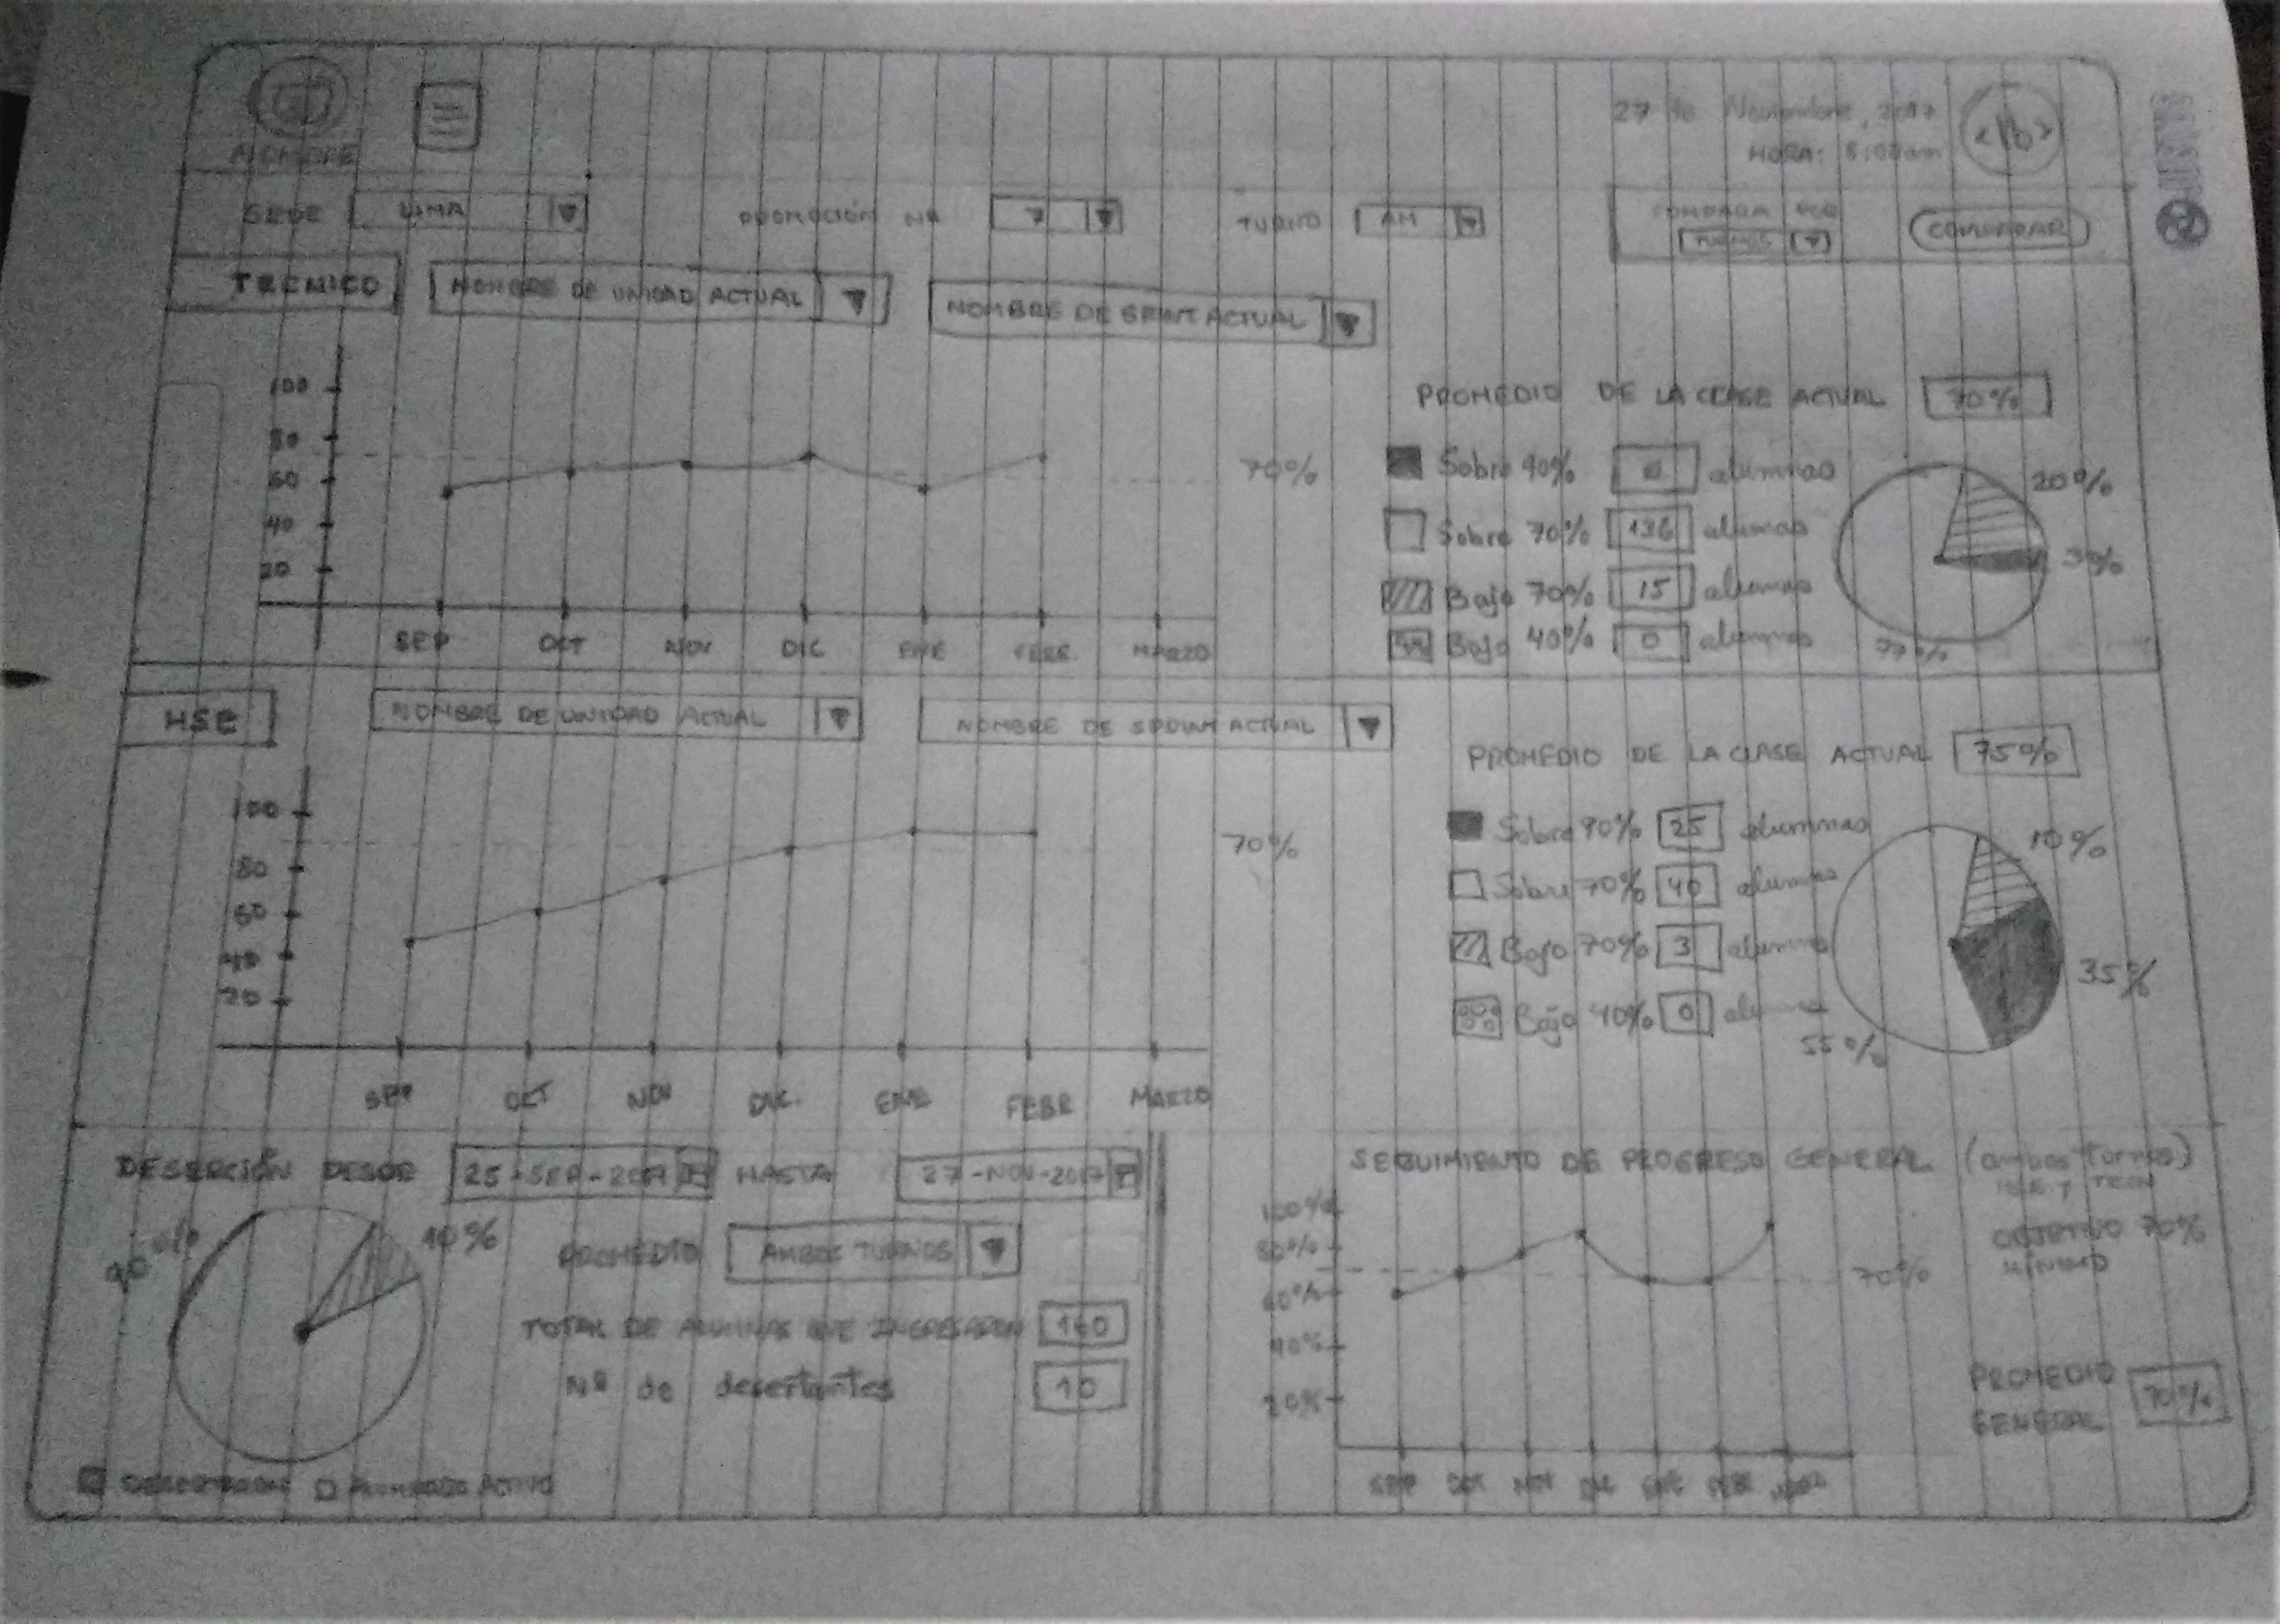 NOMBRE
27 de Noviembre, 2017
HORA: 8:00am
SEDE LIMA PROMOCIÓN Nº 7 TURNO AM COMPARA POR
TURNOS COMPARAR
TECNICO NOMBRE DE UNIDAD ACTUAL NOMBRE DE SPRINT ACTUAL
100
80
60
40
20
70%
SEP OCT NOV DIC ENE FEBR MARZO
PROMEDIO DE LA CLASE ACTUAL 70%
Sobre 90% alumnas
Sobre 70% 136 alumnas
Bajo 70% 15 alumnas
Bajo 40% 0 alumnas
20%
3%
77%
HSE NOMBRE DE UNIDAD ACTUAL NOMBRE DE ACTUAL
100
80
60
40
20
70%
SEP OCT NOV DIC. ENE FEBR MARZO
PROMEDIO DE LA CLASE ACTUAL 75%
Sobre 90% 25 alumnas
Sobre 70% 40 alumnas
Bajo 70% 3 alumnas
Bajo 40% 0
10%
35%
55%
DESERCIÓN DESDE 25-SEP-2017 HASTA 27-NOV-2017
90%
10%
PROMEDIO AMBOS TURNOS
TOTAL DE ALUMNAS QUE INGRESARON 160
Nº de desertantes 10
ALUMNADO ACTIVO
SEGUIMIENTO DE PROGRESO GENERAL (ambos turnos)
HSE Y TECN
100%
80%
60%
40%
20%
70%
OBJETIVO 70%
MÍNIMO
PROMEDIO
GENERAL 70%
SEP OCT NOV DIC ENE FEBR MARZ